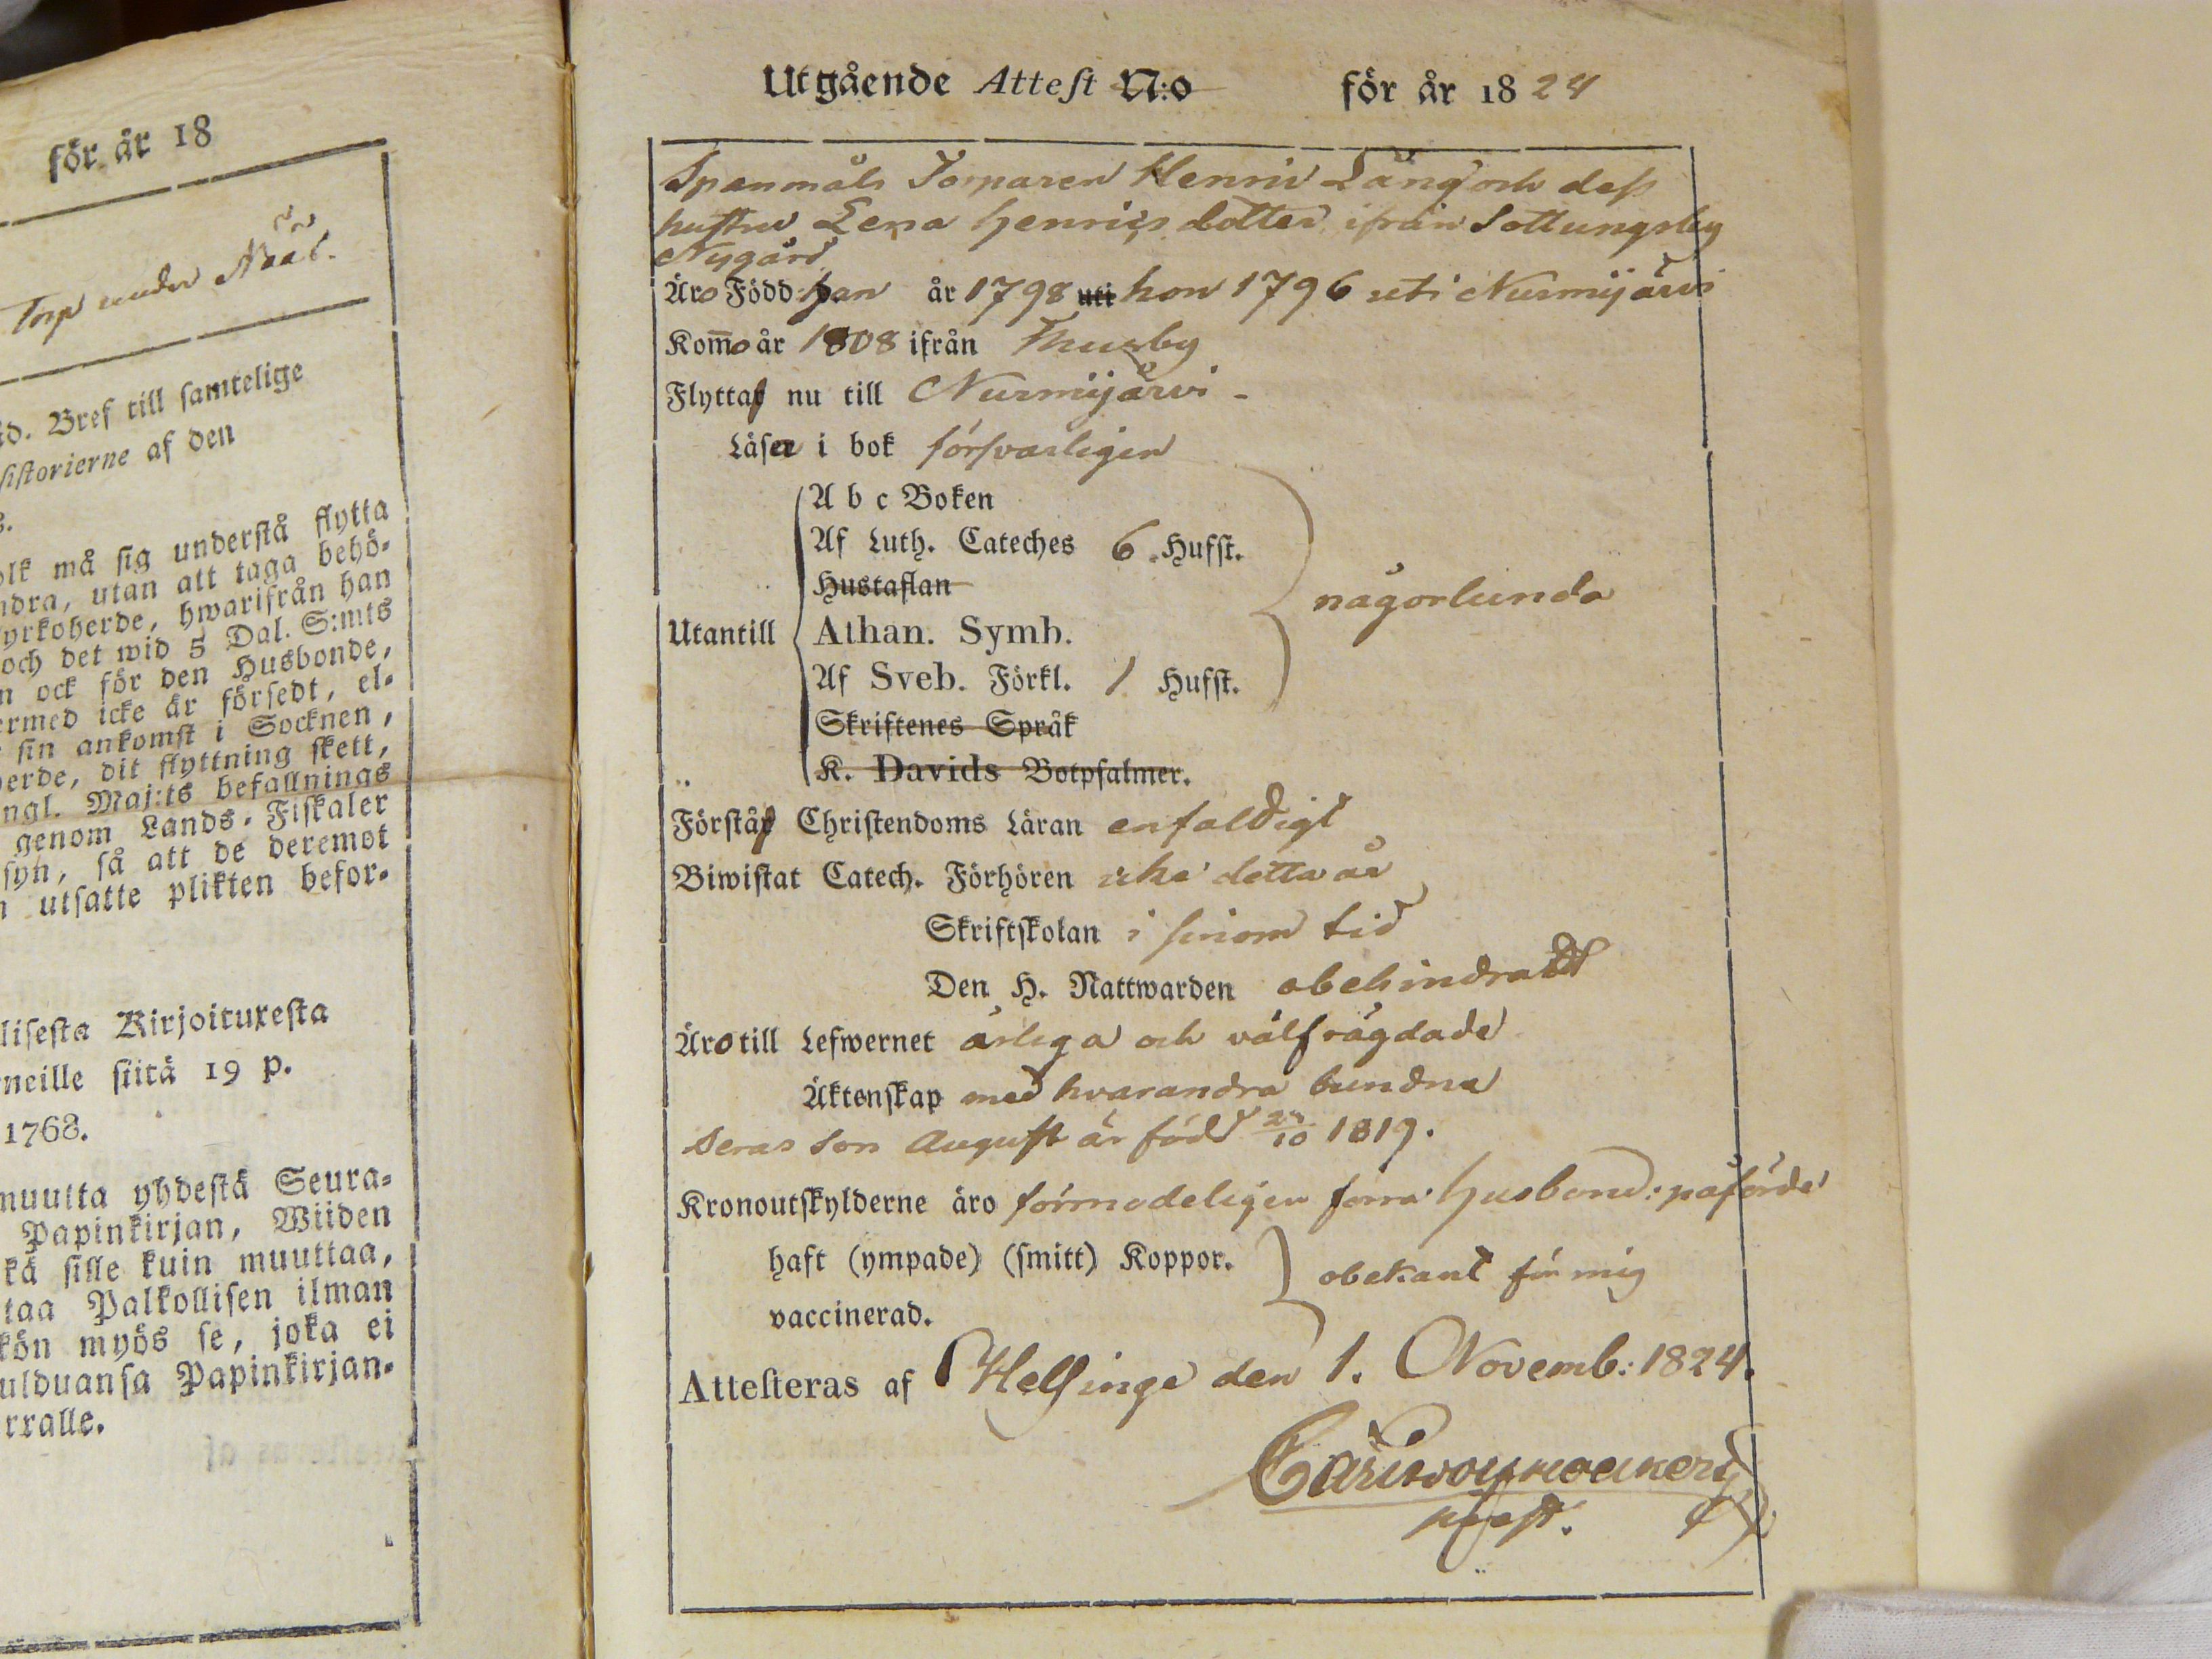 för år 18
Torp under
id. Bref till samtelige
sistorierne af den
s.
olk må sig understå flytta
ndra, utan att taga behö-
yrkoherde, hwarifrån han
och det wid 5 Dal. S:mts
n ock för den Husbonde,
ermed icke är försedt, el-
r sin ankomst i Socknen,
herde, dit flyttning skett,
ngl. Maj:ts befallnings
genom Lands-Fiskaler
syn, så att de deremot
n utsatte plikten befor-
lisesta Kirjoituxesta
neille siitä 19 p.
1763.
muutta yhdestä Seura-
Papinkirjan, Wiiden
kä sille kuin muuttaa,
taa Palkollisen ilman
kön myös se, joka ei
ulduansa Papinkirjan-
rralle.
Utgående Attest N:o för år 1824
Spanmåls Torparen Henric Lång och dess
hustru Lena Henrics dotter ifrån Sottungsby
Nygård
Äro Född han år 1798 uti hon 1796 uti Nurmijärvi
Kommo år 1808 ifrån Thusby
Flyttaf nu till Nurmijärvi -
Läsa i bok försvarligen
A b c Boken
Af Luth. Cateches 6 Hufst.
Hustaflan
någorlunda
Utantill Athan. Symb.
Af Sveb. Förkl. 1 Hufst.
Skriftenes Språk
K. Davids Botpsalmer.
Förstår Christendoms Läran enfaldigt
Biwistat Catech. Förhören icke detta år
Skriftskolan i sinom tid
Den H. Nattwarden obehindradt
Äro till Lefwernet ärliga och välfrägdade
Äktenskap med hvarandra bundna
Deras Son August är född 24/10 1819.
Kronoutskylderne äro förmodeligen förra husbond: påförde
haft (ympade) (smitt) Koppor.
obekant för mig
vaccinerad.
Attesteras af Helsinge den 1. Novemb: 1824.